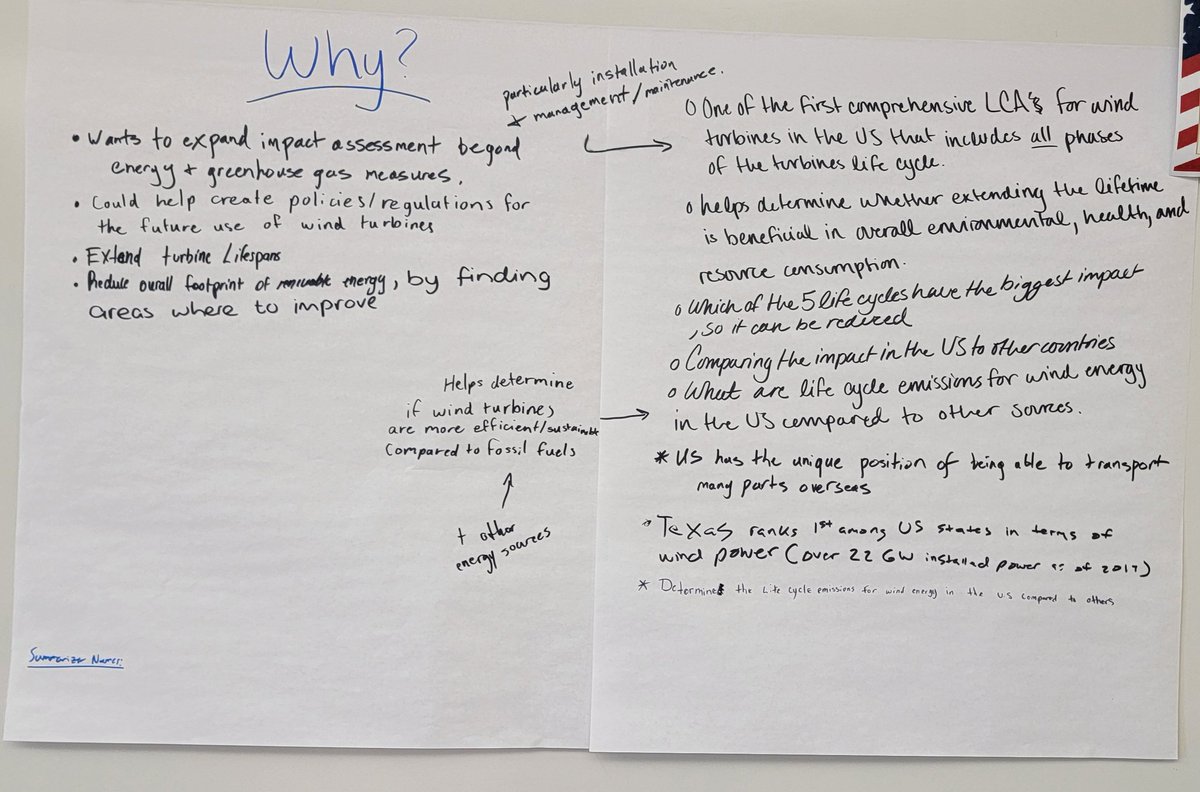 Why?
• Wants to expand impact assessment beyond
energy + greenhouse gas measures.
• Could help create policies/regulations for
the future use of wind turbines
• Extend turbine Lifespans
• Reduce overall footprint of renewable energy, by finding
areas where to improve
particularly installation
+ management/maintenance.
Helps determine
if wind turbines
are more efficient/sustainable
Compared to Fossil fuels
+ other
energy sources
Summarize Names:
o One of the first comprehensive LCA's for wind
turbines in the US that includes all phases
of the turbines life cycle.
o helps determine whether extending the lifetime
is beneficial in overall environmental, health, and
resource consumption.
o Which of the 5 life cycles have the biggest impact
, so it can be reduced
o Comparing the impact in the US to other countries
o What are life cycle emissions for wind energy
in the US compared to other sources.
* US has the unique position of being able to transport
many parts overseas
* Texas ranks 1st among US states in terms of
wind power (over 22 GW installed power as of 2017)
* Determines the life cycle emissions for wind energy in the US compared to others